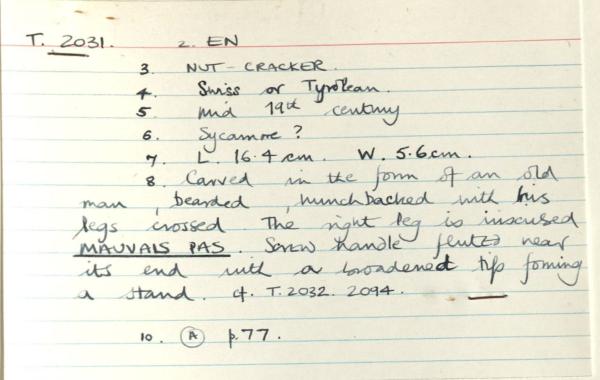 T. 2031. 2. EN
3 NUT-CRACKER.
4. Swiss or Tyrolean.
5 mid 19th century
6. Sycamore ?
7. L. 16.4 cm. W. 5.6 cm.
8. Carved in the form of an old
man, bearded, hunchbacked with his
legs crossed. The right leg is inscribed
MAUVAIS PAS. Screw handle fluted near
its end with a broadened tip forming
a stand. cf. T.2032. 2094.
10. (A) p.77.